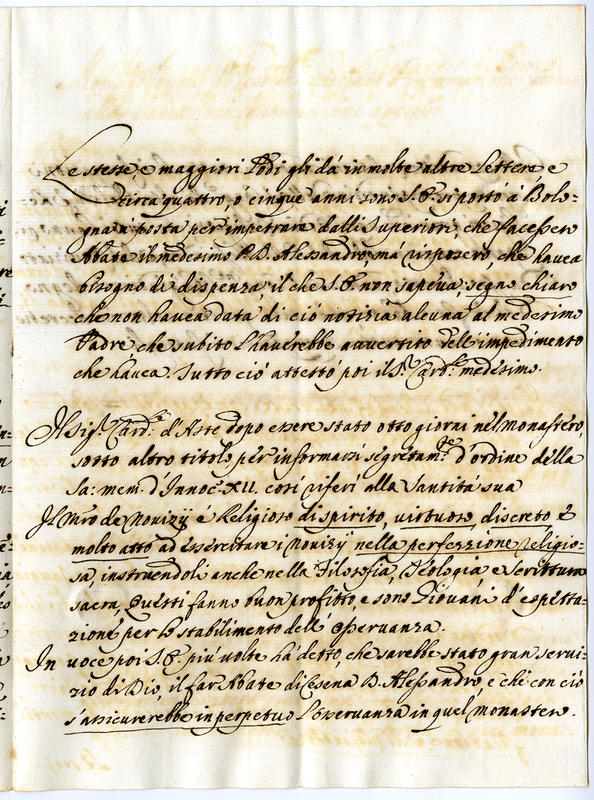 Le stesse, e maggiori Lodi gli dá in molte altre Lettere e
circa quattro, ó cinque anni sono S. E. si portó á Bolo-
gna á posta per impetrare dalli Superiori, che facessero
Abbate il medesimo P. D. Alessandro, má risposero, che havea
bisogno di dispenza, il che S. E. non sapeva, segno chiaro
che non havea data di ció notizia alcuna al medesimo
Padre che subito l'haverebbe avvertito dell'impedimento
che havea. Tutto ció attestó poi il Sr. Card.le medesimo.
Il Sig.r Card.le d'Aste dopo essere stato otto giorni nel monastero,
sotto altro titolo per informarsi segretam.te d'ordine della
Sa: mem. d'Innoc. XII. cosi riferi alla Santitá sua
Il Mro de Novizij é Religioso di spirito, virtuoso, discreto é
molto atto ad essercitare i Novizij nella perfezzione religio-
sa, instruendoli anche nella Filosofia, Teologia e Scrittura
sacra, Questi fanno buon profitto, e sono Giovani d'espetta-
zione per lo stabilimento dell'Osservanza.
In voce poi S. E. piú volte há detto, che sarebbe stato gran servi-
zio di Dio, il far Abate di Cesena D. Alessandro, e che con ció
s'assicurerebbe in perpetuo l'osservanza in quel monastero.